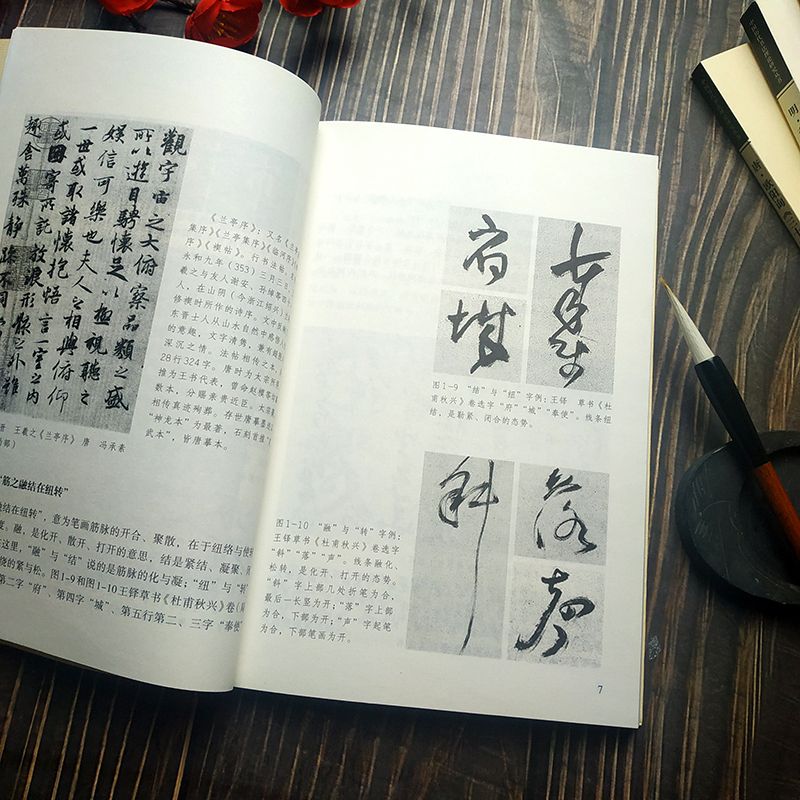 觀宇宙之大俯察品類之盛
所以遊目騁懷足以極視聽之
娛信可樂也夫人之相與俯仰
一世或取諸懷抱悟言一室之內
或因寄所託放浪形骸之外雖
趣舍萬殊靜躁不同
晋 王羲之《兰亭序》 唐 冯承素
《兰亭序》：又名《兰亭
集序》《兰亭集序》《临河序》《
序》《禊帖》。行书法帖。
永和九年（353）三月三日，
羲之与友人谢安、孙绰等四十
人，在山阴（今浙江绍兴）
修禊时所作的诗序。文中
东晋士人从山水自然中感悟
的意趣，文字清隽，兼有
深沉之情。法帖相传之本，
28行324字。唐时为太宗所
推为王书代表，曾命赵模等
数本，分赐亲贵近臣。太宗
相传真迹殉葬。存世唐摹墨迹
“神龙本”为最著，石刻首推“
武本”，皆唐摹本。
“筋之融结在纽转”
融结在纽转”，意为笔画筋脉的开合、聚散，在于纽络与使转
度，融，是化开、散开、打开的意思，结是紧结、凝聚、
这里，“融”与“结”说的是筋脉的化与凝；“纽”与“转”
绕的紧与松。图1-9和图1-10王铎草书《杜甫秋兴》卷（
第二字“府”、第四字“城”、第五行第二、三字“奉使”
府
城
奉使
图1-9 “结”与“纽”字例：王铎 草书《杜
甫秋兴》卷选字“府”“城”“奉使”。线条纽
结，是勒紧、闭合的态势。
图1-10 “融”与“转”字例：
王铎草书《杜甫秋兴》卷选字
“斜”“落”“声”。线条融化、
松转，是化开、打开的态势。
“斜”字上部几处折笔为合，
最后一长竖为开；“落”字上部
为合，下部为开；“声”字起笔
为合，下部笔画为开。
斜
落
声
7
明